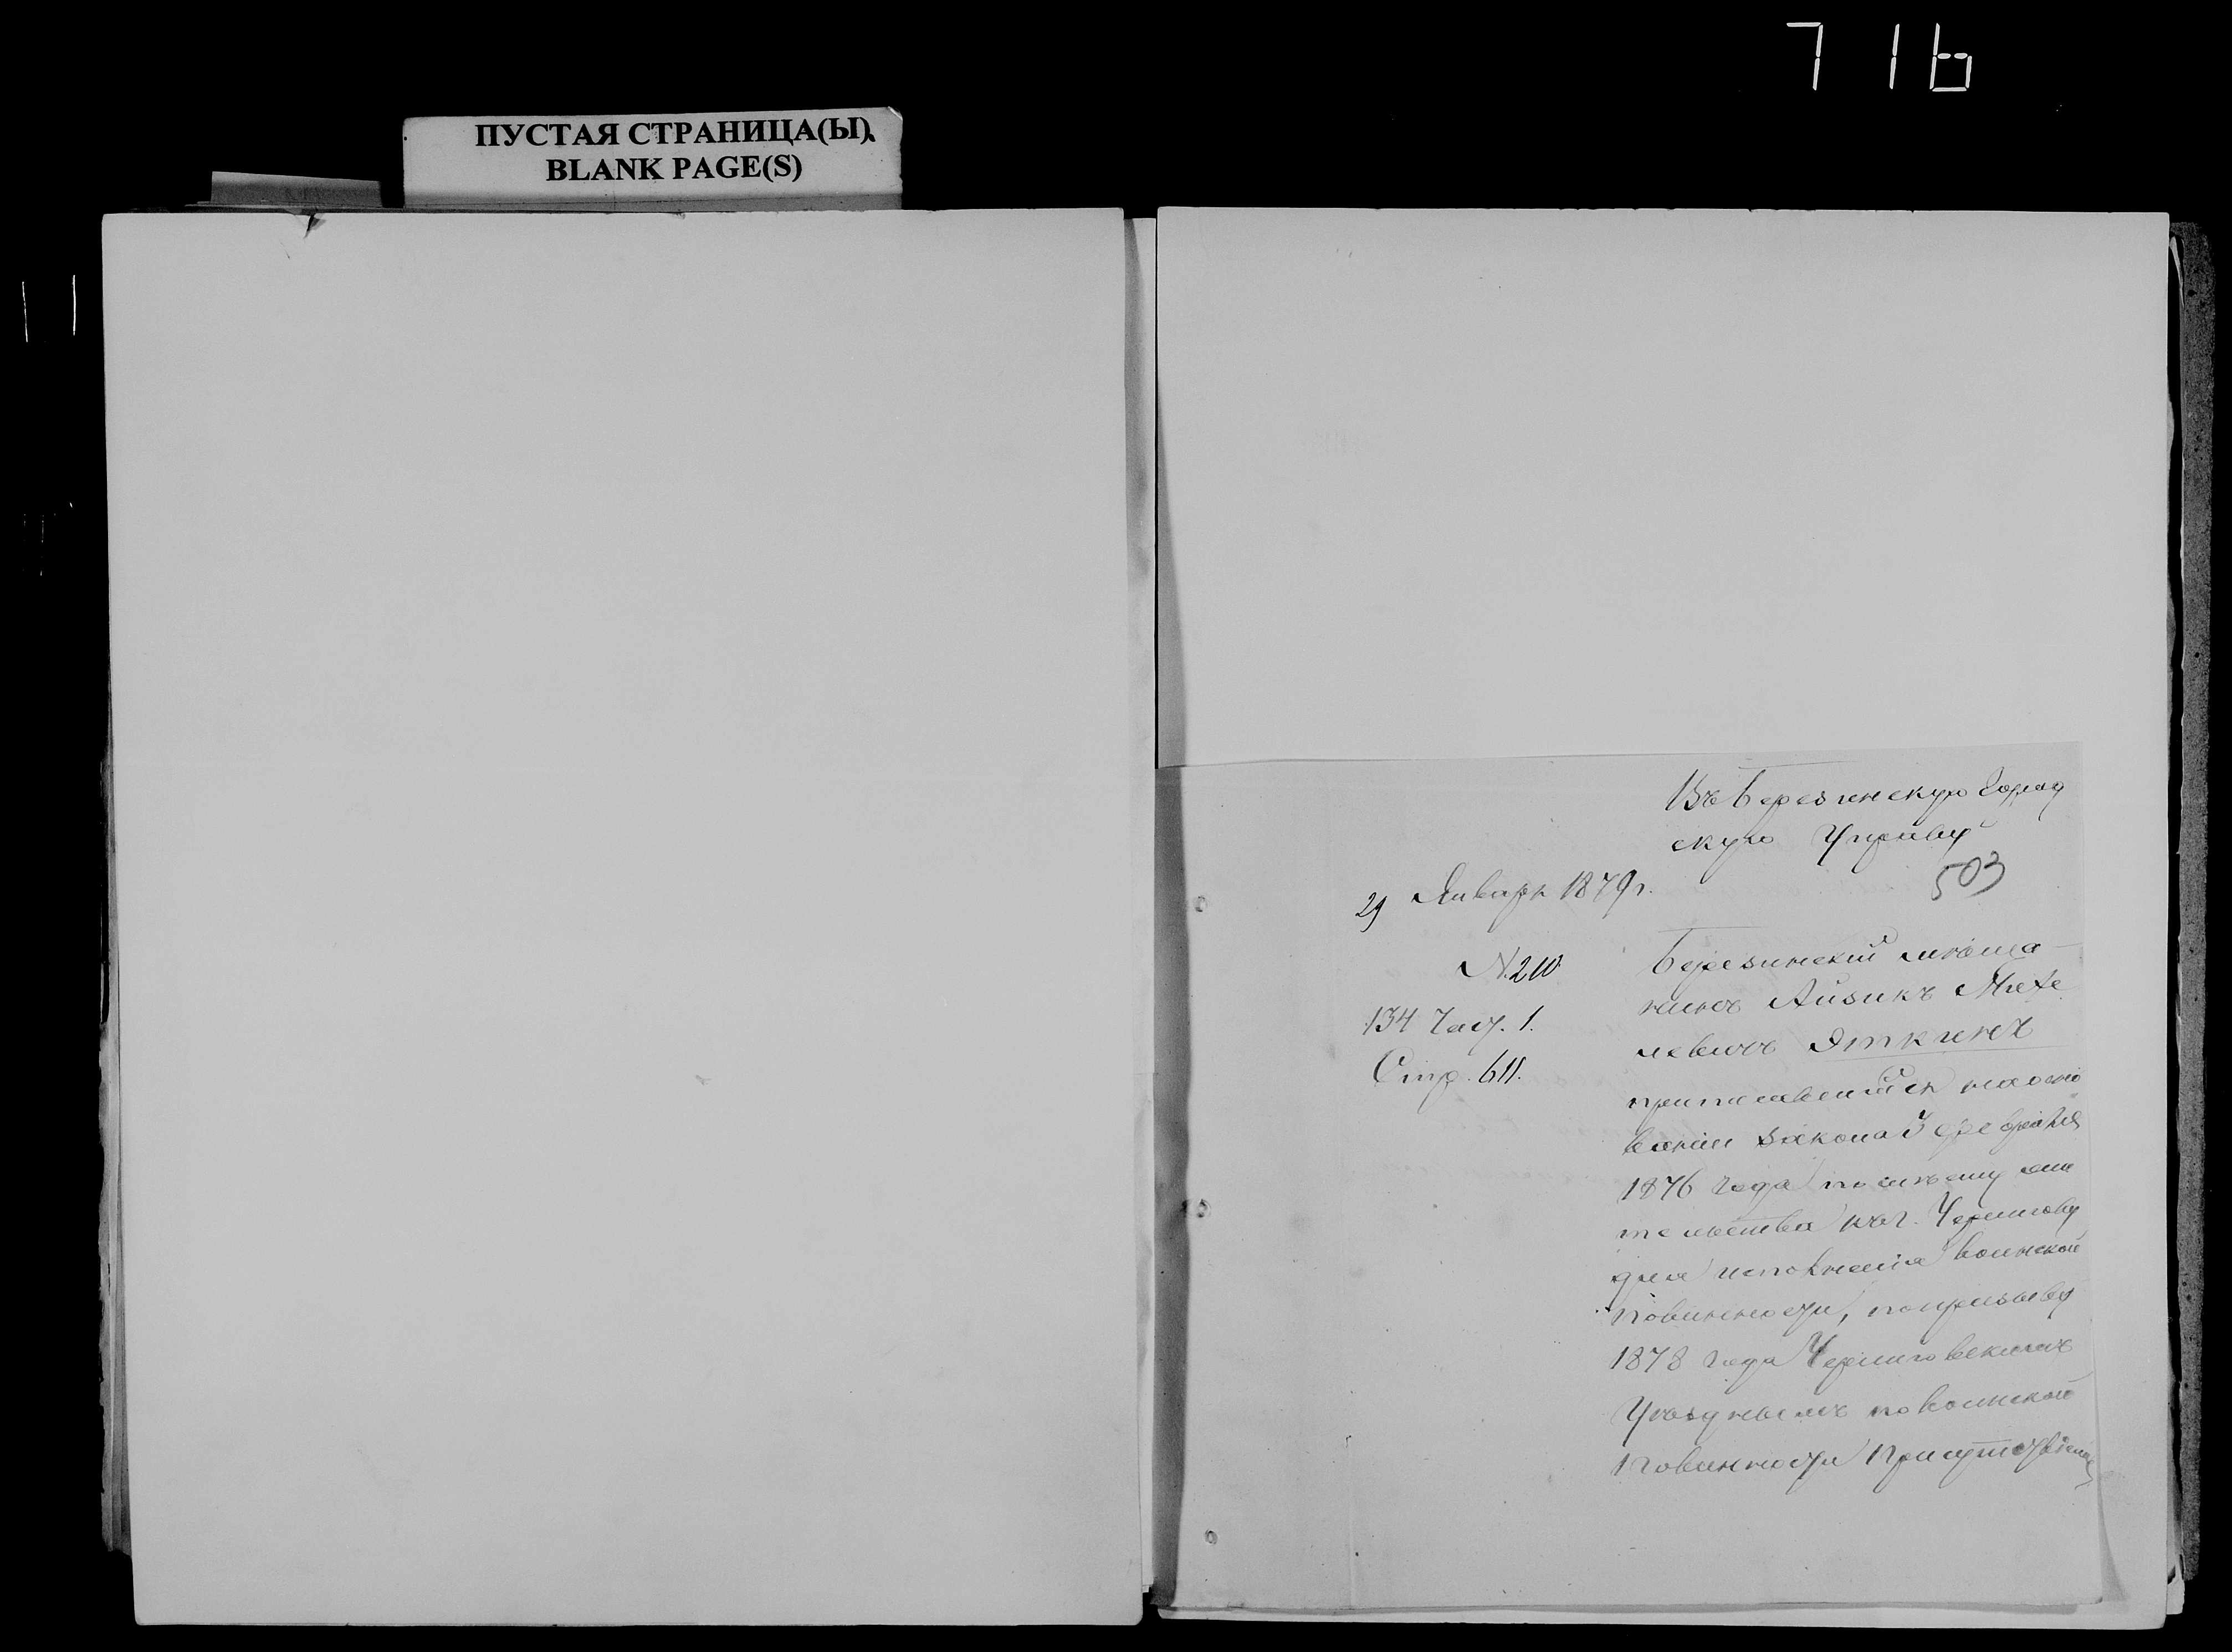 716
ПУСТАЯ СТРАНИЦА(Ы)
BLANK PAGE(S)
Въ Березинскую Город
скую Управу
503
29 Января 1879 г.
N. 210
134 Част. 1.
Стр. 611.
Березинскій мѣща-
нинъ Айзикъ Михе
левичъ Эткинъ
приписавшійся на осно
ваніи закона 3 февраля
1876 года по мѣсту жи
тельства къ г. Чернигову
для исполненія воинской
повинности, по призыву
1878 года Черниговскимъ
Уѣзднымъ по воинской
повинности Присутствіемъ